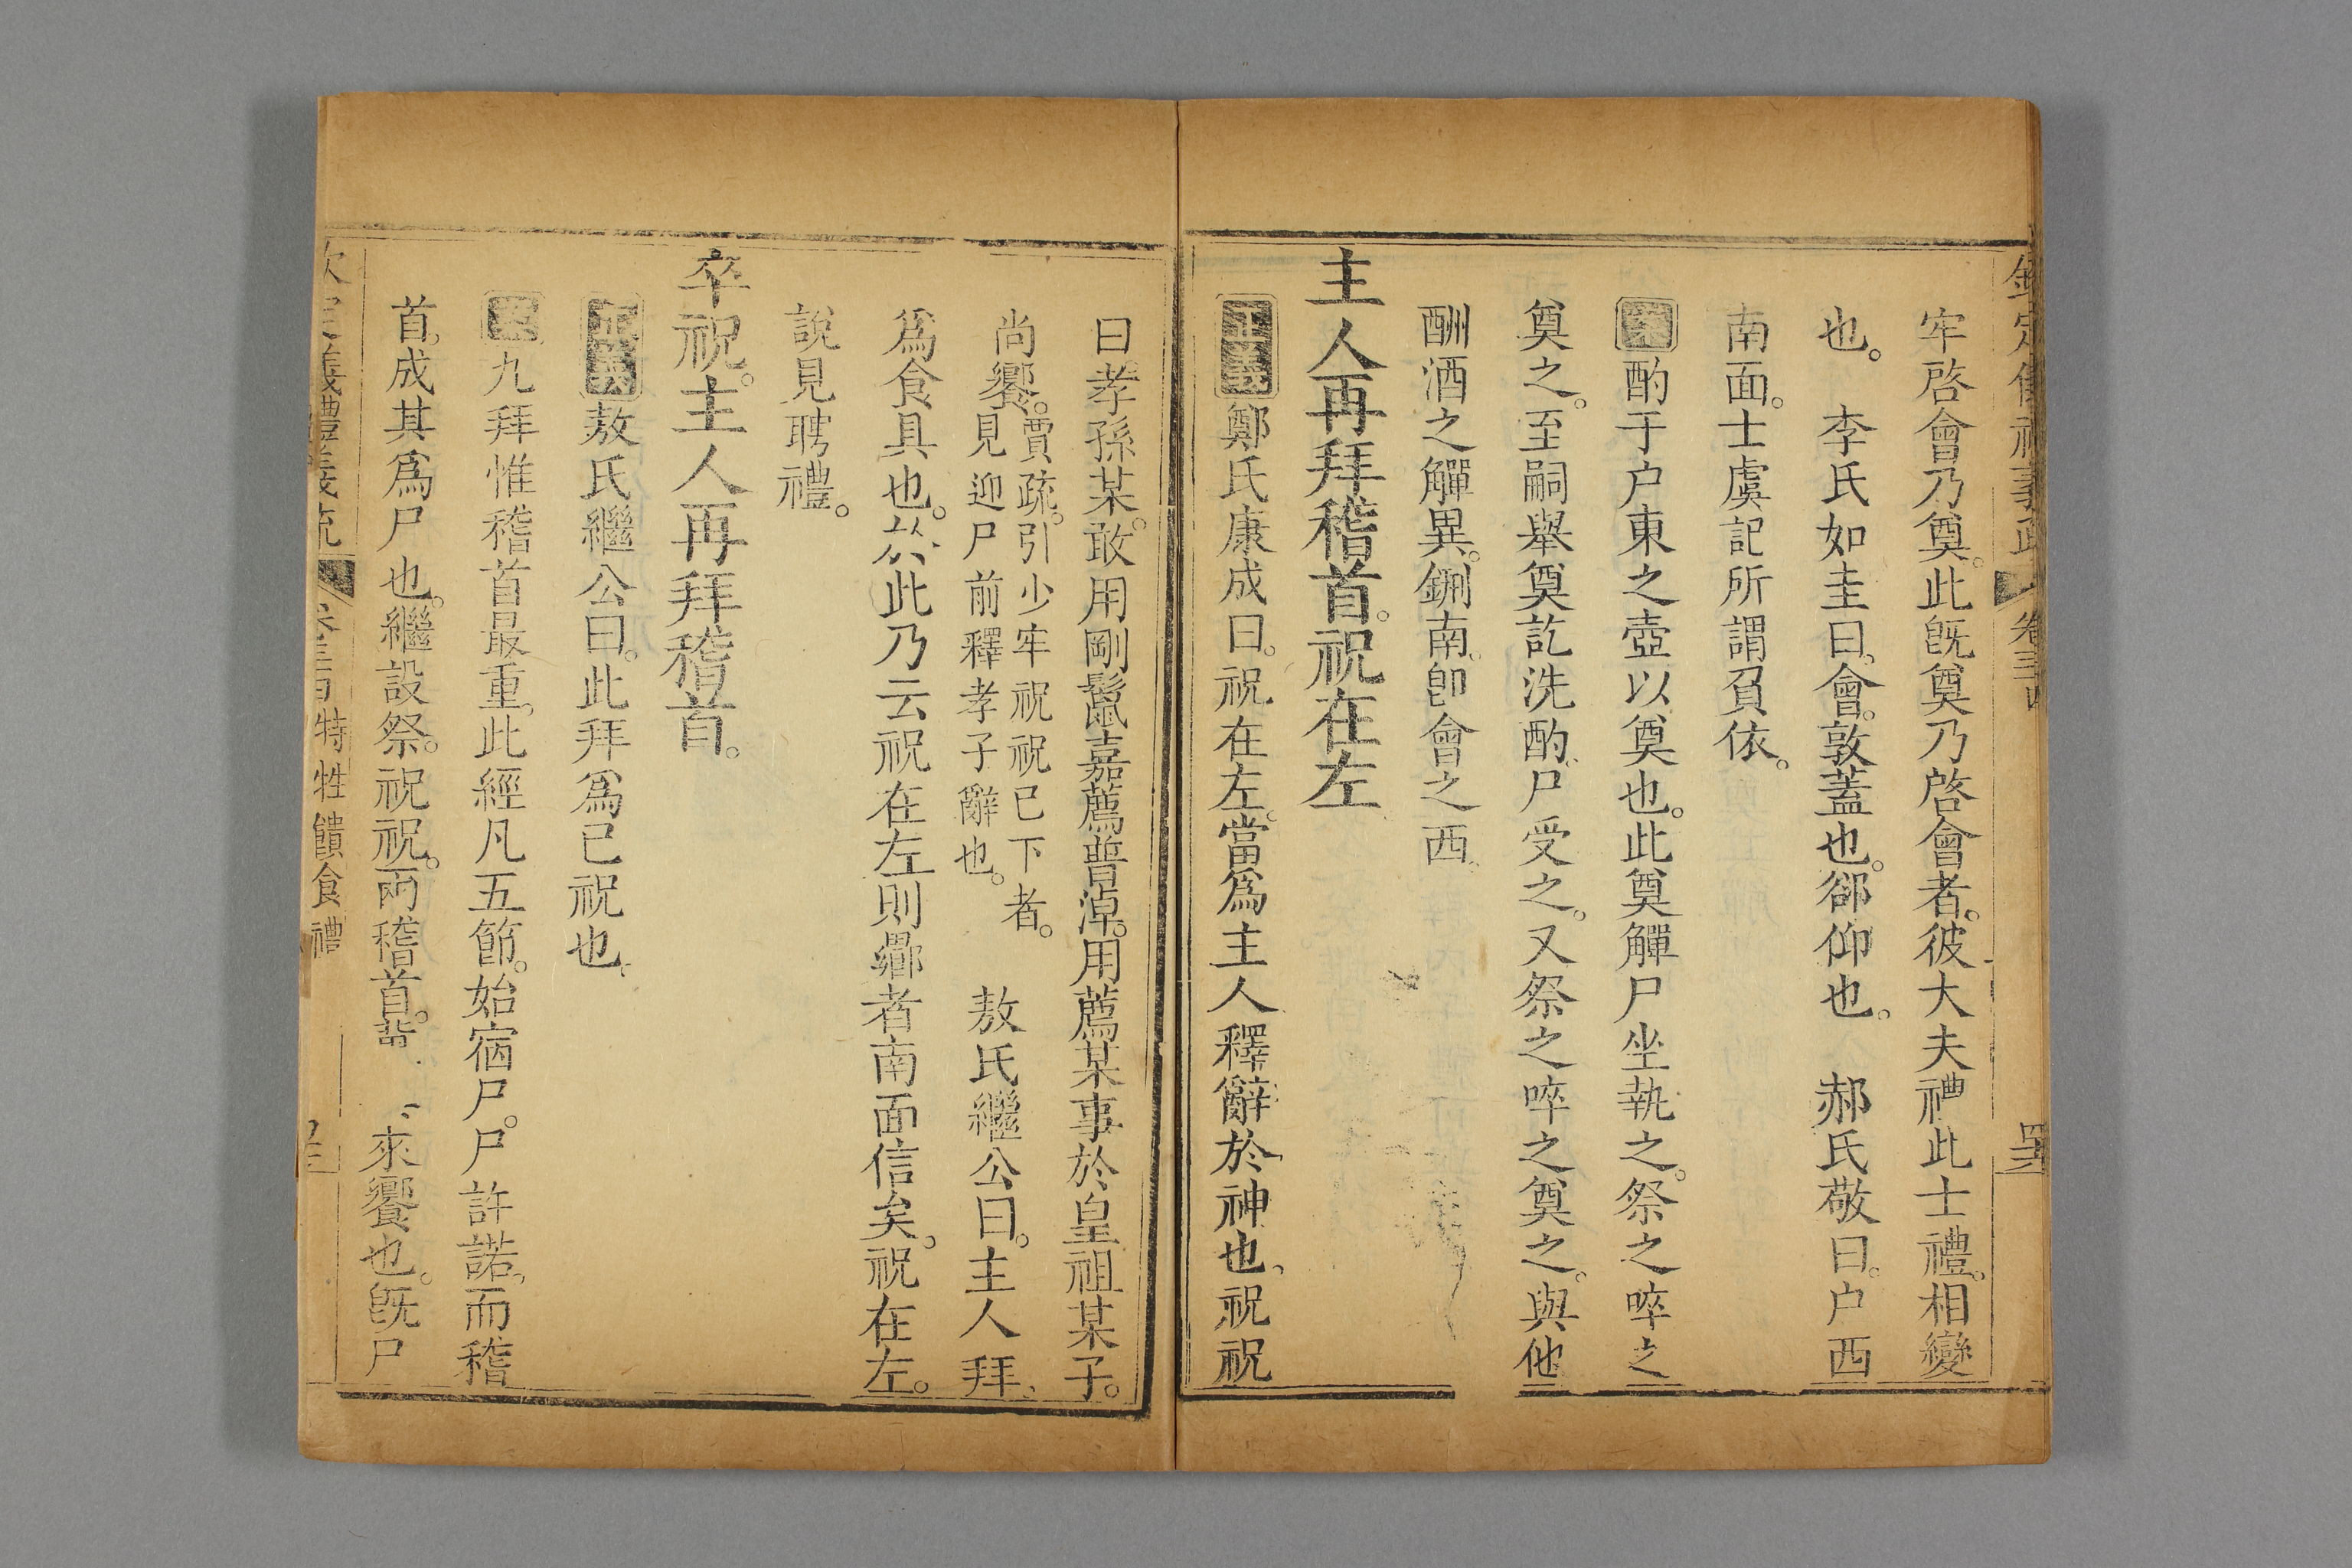 牢啓會乃奠。此既奠乃啓會者。彼大夫禮此士禮。相變
也。　李氏如圭曰。會。敦蓋也。郤仰也。　郝氏敬曰。户西
南面。士虞記所謂負依。
案酌于户東之壺以奠也。此奠觶尸坐執之。祭之啐之
奠之。至嗣舉奠訖洗酌。尸受之。又祭之啐之奠之。與他
酬酒之觶異。鉶南。卽會之西。
主人再拜稽首。祝在左
正義鄭氏康成曰。祝在左。當爲主人釋辭於神也。祝祝
曰孝孫某。敢用剛鬣嘉薦普淖。用薦某事於皇祖某子。
尚饗。賈疏。引少牢祝祝已下者。
見迎尸前釋孝子辭也。　敖氏繼公曰。主人拜。
爲食具也。於此乃云祝在左則曏者南面信矣。祝在左。
說見聘禮。
卒祝。主人再拜稽首。
正義敖氏繼公曰。此拜爲已祝也。
案九拜惟稽首最重。此經凡五節。始宿尸。尸許諾。而稽
首。成其爲尸也。繼設祭。祝祝。兩稽首。來饗也。既尸
特牲饋食禮